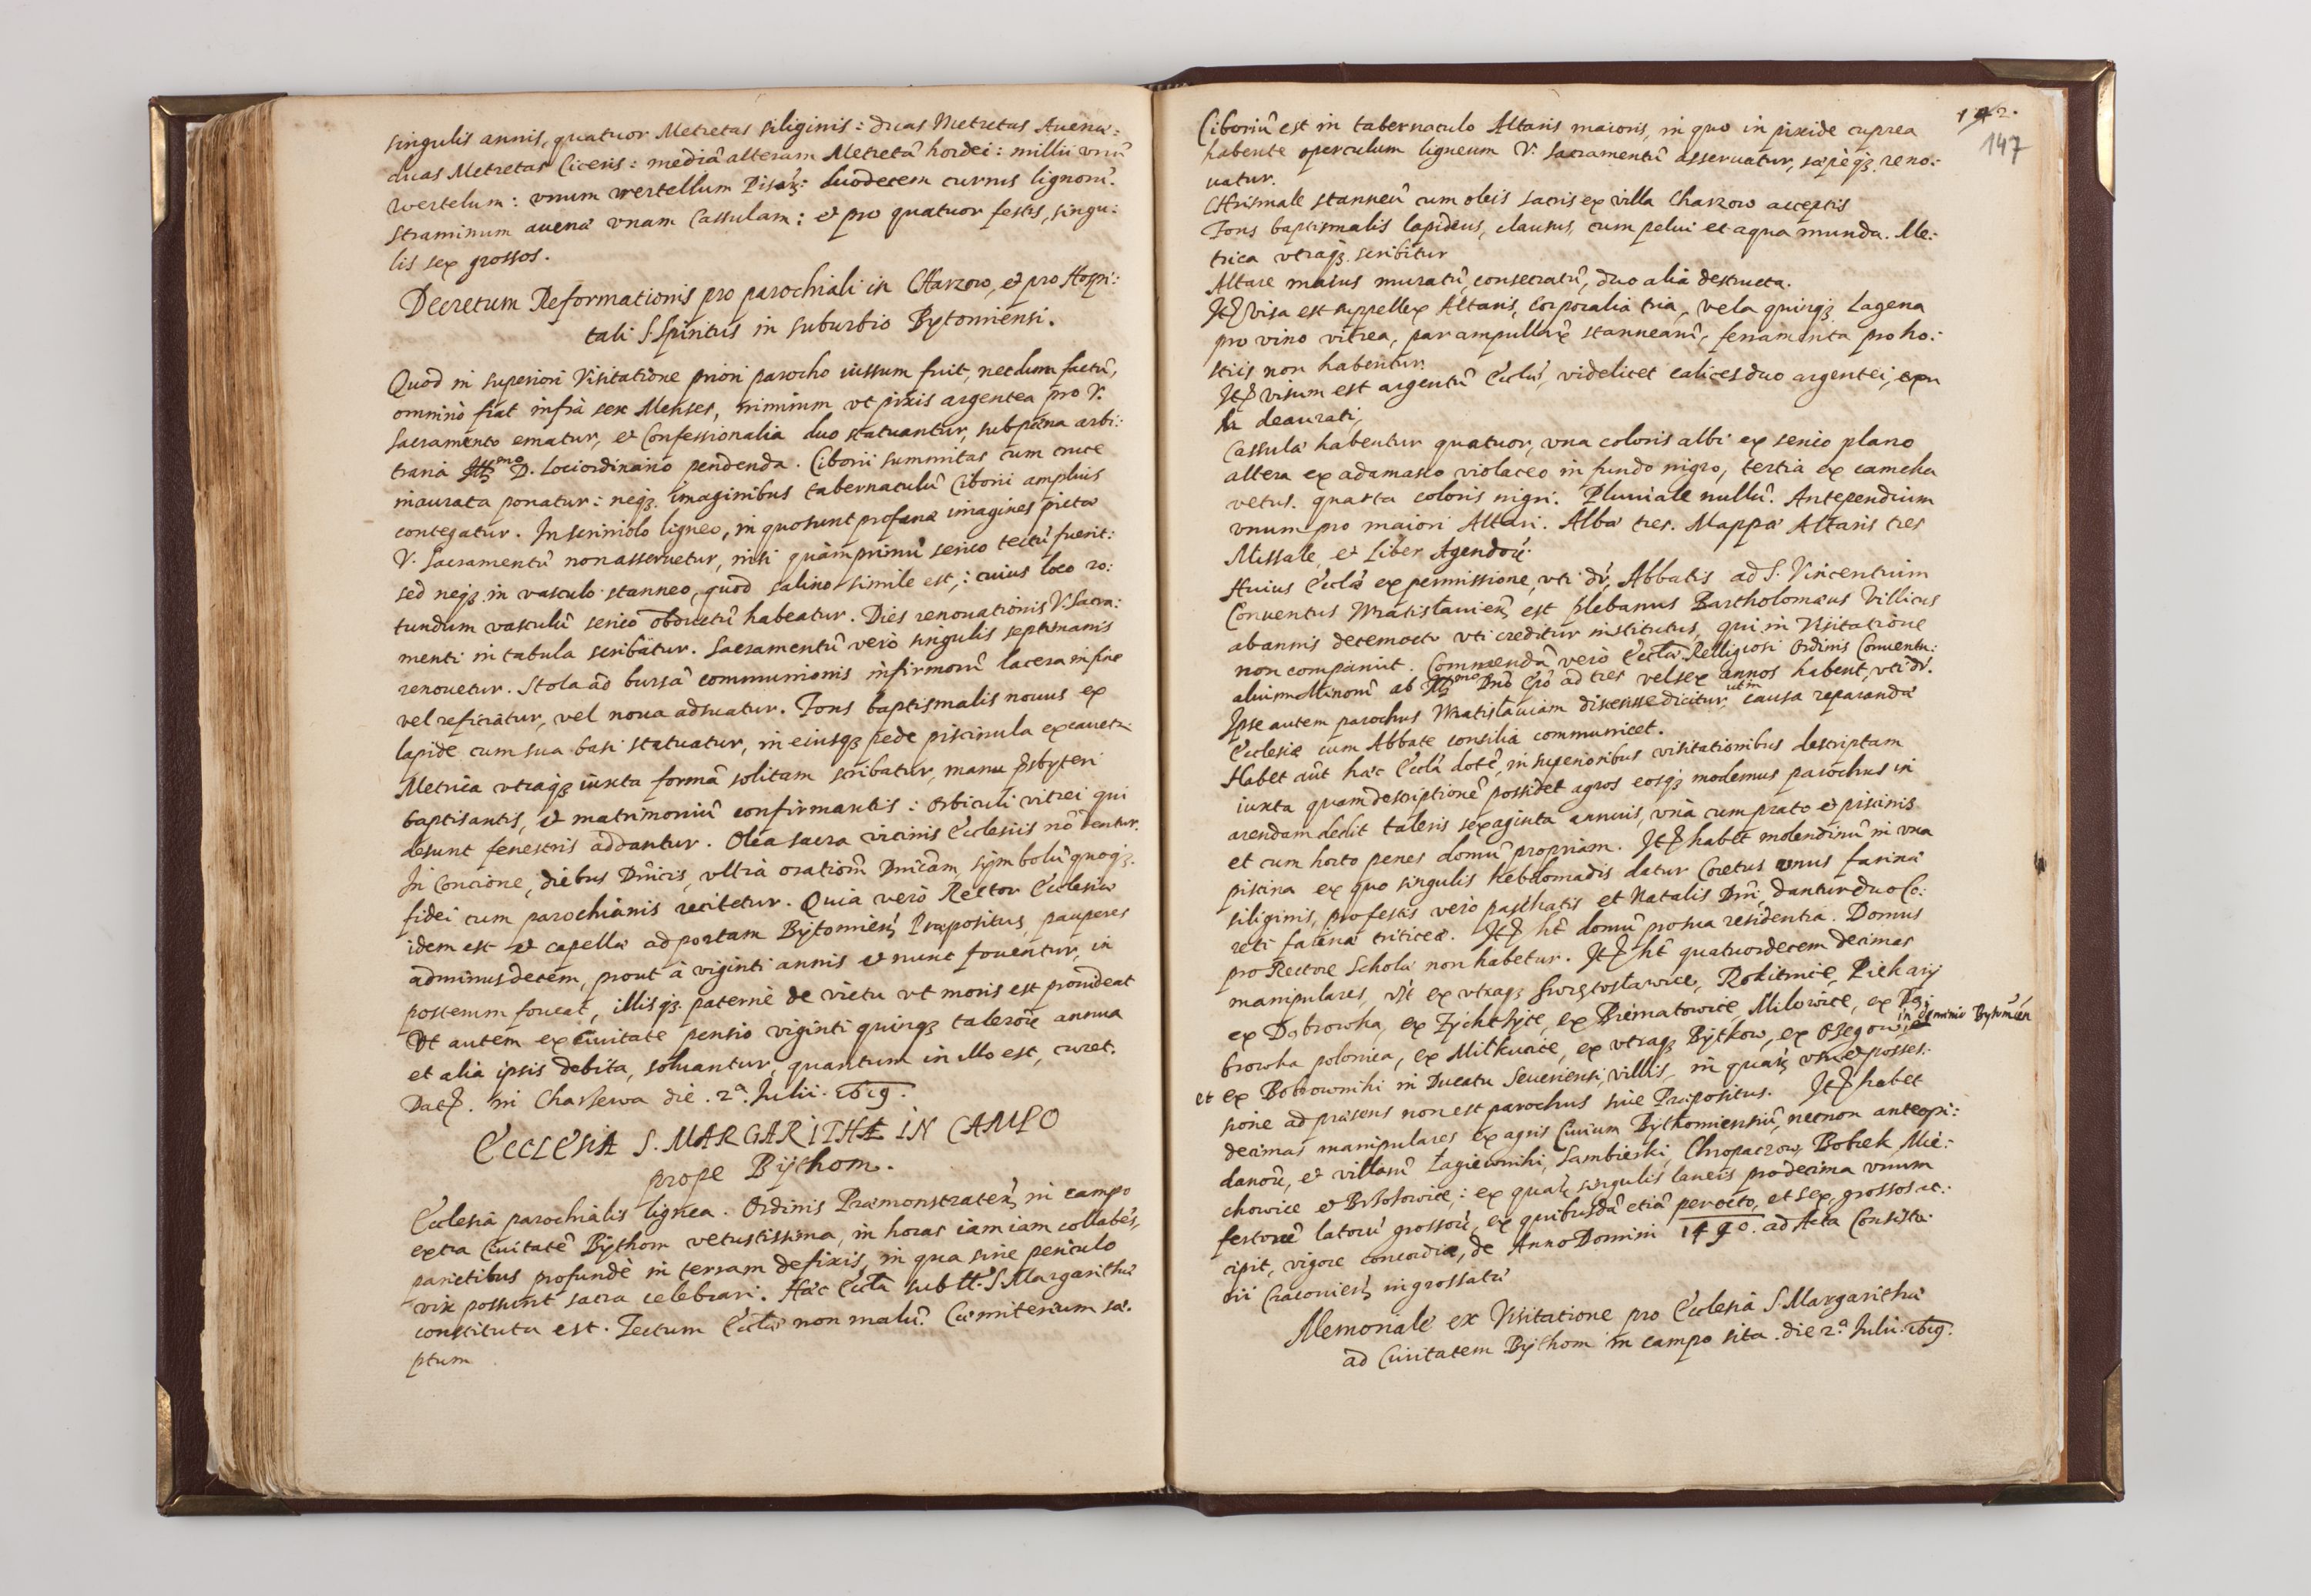 singulis annis, quatuor Metretas siliginis: duas Metretas Auenæ:
duas Metretas Ciceris: mediâ alteram Metretâ hordei: millii vnû
wertelum: vnum wertellum Pisoꝝ: duodecem currus lignorû.
straminum auenæ vnam Cassulam: et pro quatuor festis, singu:
lis sex grossos.
Decretum Reformationis pro parochiali in Charzow, et pro Hospi:
tali S Spiritus in suburbio Bytomiensi.
Quod in superiori Visitatione priori parocho iussum fuit, necdum factû,
omninò fiat infra sex Menses, nimirum vt pixis argentea pro V.
Sacramento ematur, et Confessionalia duo statuantur, sub pœna arbi:
traria D. Loci ordinario pendenda. Ciborii summitas cum cruce
inaurata ponatur: neqꝫ imaginibus tabernaculû Ciborii amplius
contegatur. In scriniolo ligneo, in quo sunt profanæ imagines pictæ
V. Sacramentû non asseruetur, nisi quàm primû serico tectû fuerit:
sed neqꝫ in vasculo stanneo, quod salino simile est,: cuius loco ro:
tundum vasculû serico obductû habeatur. Dies renouationis V. Sacra:
menti in tabula scribatur. Sacramentû verò singulis septimanis
renouetur. Stola ad bursâ communionis infirmorû lacera in fine
vel reficiatur, vel noua adsuatur. Fons baptismalis nouus ex
lapide cum sua basi statuatur, in eiusqꝫ pede piscinula excauetr
Metrica vtraqꝫ iuxta formâ solitam scribatur, manu pꝛsbyteri
baptisantis, et matrimoniû confirmantis: Orbiculi vitrei qui
desunt fenestris addantur. Olea sacra vicinis Ecclesiis nô dentur.
In Concione, diebus Dnîcis, vltrà orationê Dnîcam, symbolû quoqꝫ
fidei cum parochianis recitetur. Quia verò Rector Ecclesiæ
idem est et capellæ ad portam Bÿtomieñ Præpositus, pauperes
ad minus decem, prout à viginti annis et nunc fouentur, in
posterum foueat, illisqꝫ paternè de victu vt moris est prouideat
Vt autem ex Ciuitate pensio viginti quinqꝫ talerorû annua
et alia ipsis debita, soluantur, quantum in illo est, curet.
Dat. in Charzewa die. 2ª. Julii. 1619.
ECCLESIA S. MARGARITHÆ IN CAMPO
prope Bÿthom.
Ecclesia parochialis lignea. Ordinis Præmonstrateñ in campo
extra Ciuitatê Bÿthom vetustissima, in horas iam iam collabês,
parietibus profundè in terram defixis, in qua sine periculo
vix possunt sacra celebrari. Hæc Eccla sub tt. S Margarithæ
constituta est. Tectum Ecclæ non malû. Cæmiterium sæ:
ptum
142.
147
Ciboriû est in tabernaculo Altaris maioris, in quo in pixide cuprea
habente operculum ligneum V. Sacramentû asseruatur, sæpèqꝫ reno:
uatur.
Chrismale stanneû cum oleis sacris ex villa Charzow acceptis
Fons baptismalis lapideus, clausus, cum pelui et aqua munda. Me:
trica vtraqꝫ scribitur
Altare maius muratû, consecratû, duo alia destructa.
Itꝫ visa est suppellex Altaris, Corporalia tria, vela quinqꝫ Lagena
pro vino vitrea, par ampullarû stannearû, ferramenta pro ho:
stiis non habentur.
Itꝫ visum est argentû Ecclæ, videlicet calices duo argentei,
deaurati,
Cassulæ habentur quatuor, vna coloris albi ex serico plano
altera ex adamasco violaceo in fundo nigro, tertia ex camcha
vetus. quarta coloris nigri. Pluuiale nullû. Antependium
vnum pro maiori Altari. Albæ tres. Mappæ Altaris tres
Missale, et Liber Agendorû.
Huius Ecclæ ex permissione, vti dr̃, Abbatis ad S. Vincentium
Conuentus Wratislauieñ est plebanus Bartholomæus Villicus
ab annis decem octo vti creditur institutus, qui in Visitatione
non comparuit. Commendâ verò Ecclæ Relligiosi Ordinis Conuentu:
alium Minorû ab Dnô Epô ad tres vel sex annos habent, vti dr̃.
Ipse autem parochus Wratislauiam discessisse dicitur, vtm causa reparandæ
Ecclesiæ cum Abbate consilia communicet.
Habet aût hæc Eccla dotê, in superioribus visitationibus descriptam
iuxta quam descriptionê possidet agros eosqꝫ modernus parochus in
arendam dedit taleris sexaginta annuis, vnà cum prato et piscinis
et cum horto penes domû propriam. Itꝫ habet molendinû in vna
piscina ex quo singulis hebdomadis datur Coretus vnus farinæ
siliginis, pro festis verò paschatis et Natalis Dnî, dantur duo Co:
reti farinæ triticeæ. Itꝫ hêt domû pro sua residentia. Domus
pro Rectore Scholæ non habetur. Itꝫ hêt quatuordecem decimas
manipulares, vꝫt ex vtraqꝫ Swiętoslawice, Rokitnice, Piekarÿ
ex Dąbrowka, ex Zÿchtÿce, ex Przematowice, Milowice, ex Dą:
browka polonica, ex Mitkuice, ex vtraqꝫ Bÿtkow, ex Ozegow, in dominio Bytomieñ
et ex Bobrownihi in Ducatu Seueriensi, villis, in quarꝫ vsu et posses:
sione ad præsens non est parochus siue Præpositus. Itꝫ habet
decimas manipulares ex agris Ciuium Bÿthomiensiû, necnon anteopi:
danorû, et villarû Łagiewnihi, Sambieski, Chropaczow, Bobrek Mie:
chowice et Brzosowice,: ex quarꝫ singulis laneis pro decima vnum
fertonê latorû grossorû, ex quibusdâ etiâ per octo, et sex grossos ac:
cipit, vigore concordiæ, de Anno Domini 1490. ad Acta Consisto:
rii Cracouieñ ingrossatæ
Memoriale ex Visitatione pro Ecclesia S. Margarithæ
ad Ciuitatem Bÿthom in campo sita. die 2ª Julii. 1619.